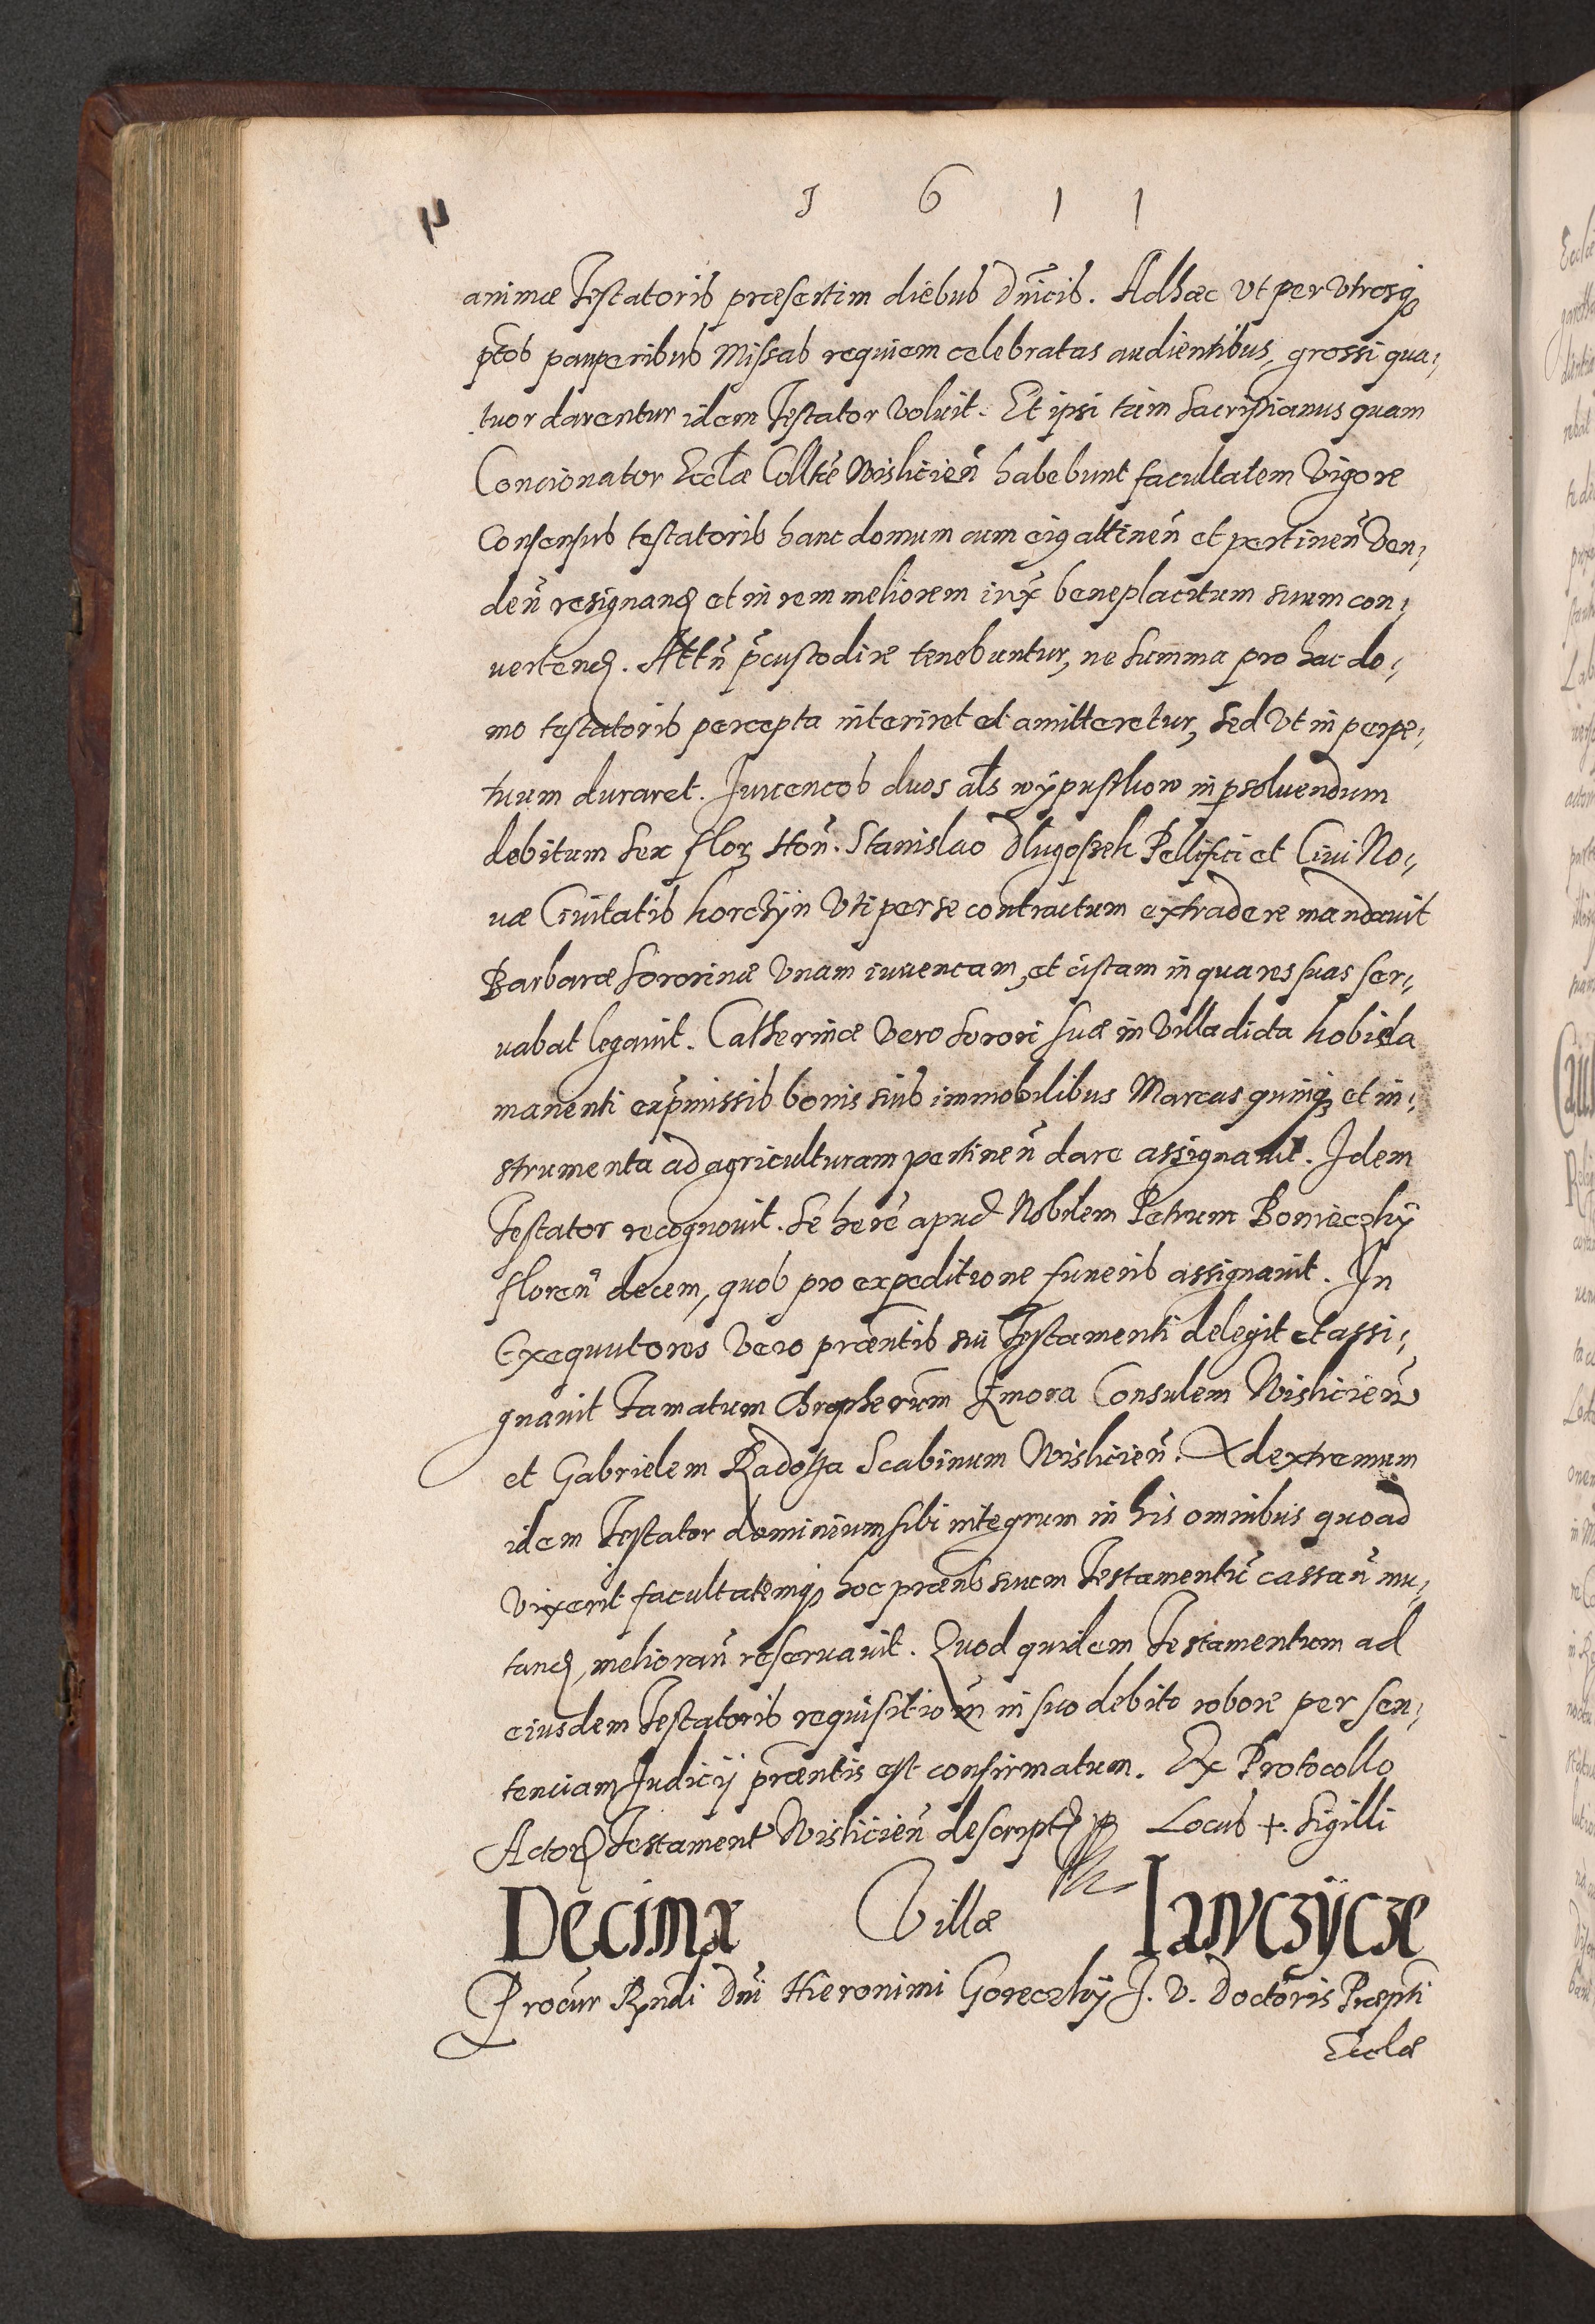 1 6 1 1
animæ Testatoris præsertim diebus Dnīcis. Adhæc Vt per Vtrosq₃
pctos pauperibus Missas requiem celebratas audientibus, grossi qua,,
tuor darentur idem Testator voluit. Et ipsi tam Sacripianus quam
Concionator Eccłæ Colltē Wislicieñ habebunt facultatem Vigore
Consensus testatoris hanc domum cum eiq attineñ et pertineñ Ven,,
deñ resignanḍ et in rem meliorem iux beneplacitum suum con,,
vertenḍ. Attñ p̄custodire tenebuntur, ne summa pro hac do,,
mo testatoris percepta interiret et amitteretur, sed Vt in perpe,,
tuum duraret. Juvencos duos als wÿpustkow in psoluendum
debitum sex flor Hoñ. Stanislao Długossek Pellifici et Ciui No,,
uæ Ciuitatis korczÿn Vti per se contractum extradere mandauit
Barbaræ Sororinæ Vnam iuuencam, et cistam in qua res suas ser,,
uabat legauit. Catherinæ Vero Sorori suæ in Villa dicta kobiela
manenti exp̄missis bonis suis immobilibus Marcas quinq₃ et in,,
strumenta ad agriculturam pertineñ dare assignauit. Idem
Testator recognouit. Se herē apud Nobilem Petrum Bonieczkÿ
floreñ decem, quos pro expeditione funeris assignauit. In
Exequutores Vero præntis sui Testamenti delegit et assi,,
gnauit Famatum Chropherum Zmora Consulem Wislicieñ
et Gabrielem Radossa Scabinum Wislicieñ. Ad extremum
idem Testator dominium sibi integrum in his omnibus quoad
Vixerit facultatemq₃ hoc præns suum Testamentū cassañ mu,,
tanḍ, meliorañ reseruauit. Quod quidem Testamentum ad
eiusdem Testatoris requisitioñ in suo debito robore per sen,,
tenciam Iudicij præntis est confirmatum. Ex Protocollo
Actor Testament Wislicieñ descript Locus +. Sigilli
Decima Villæ Ianczÿcze
Procur Rndi Dni Hieronimi Goreczkÿ J. V. Doctoris Præpti
Ecclæ